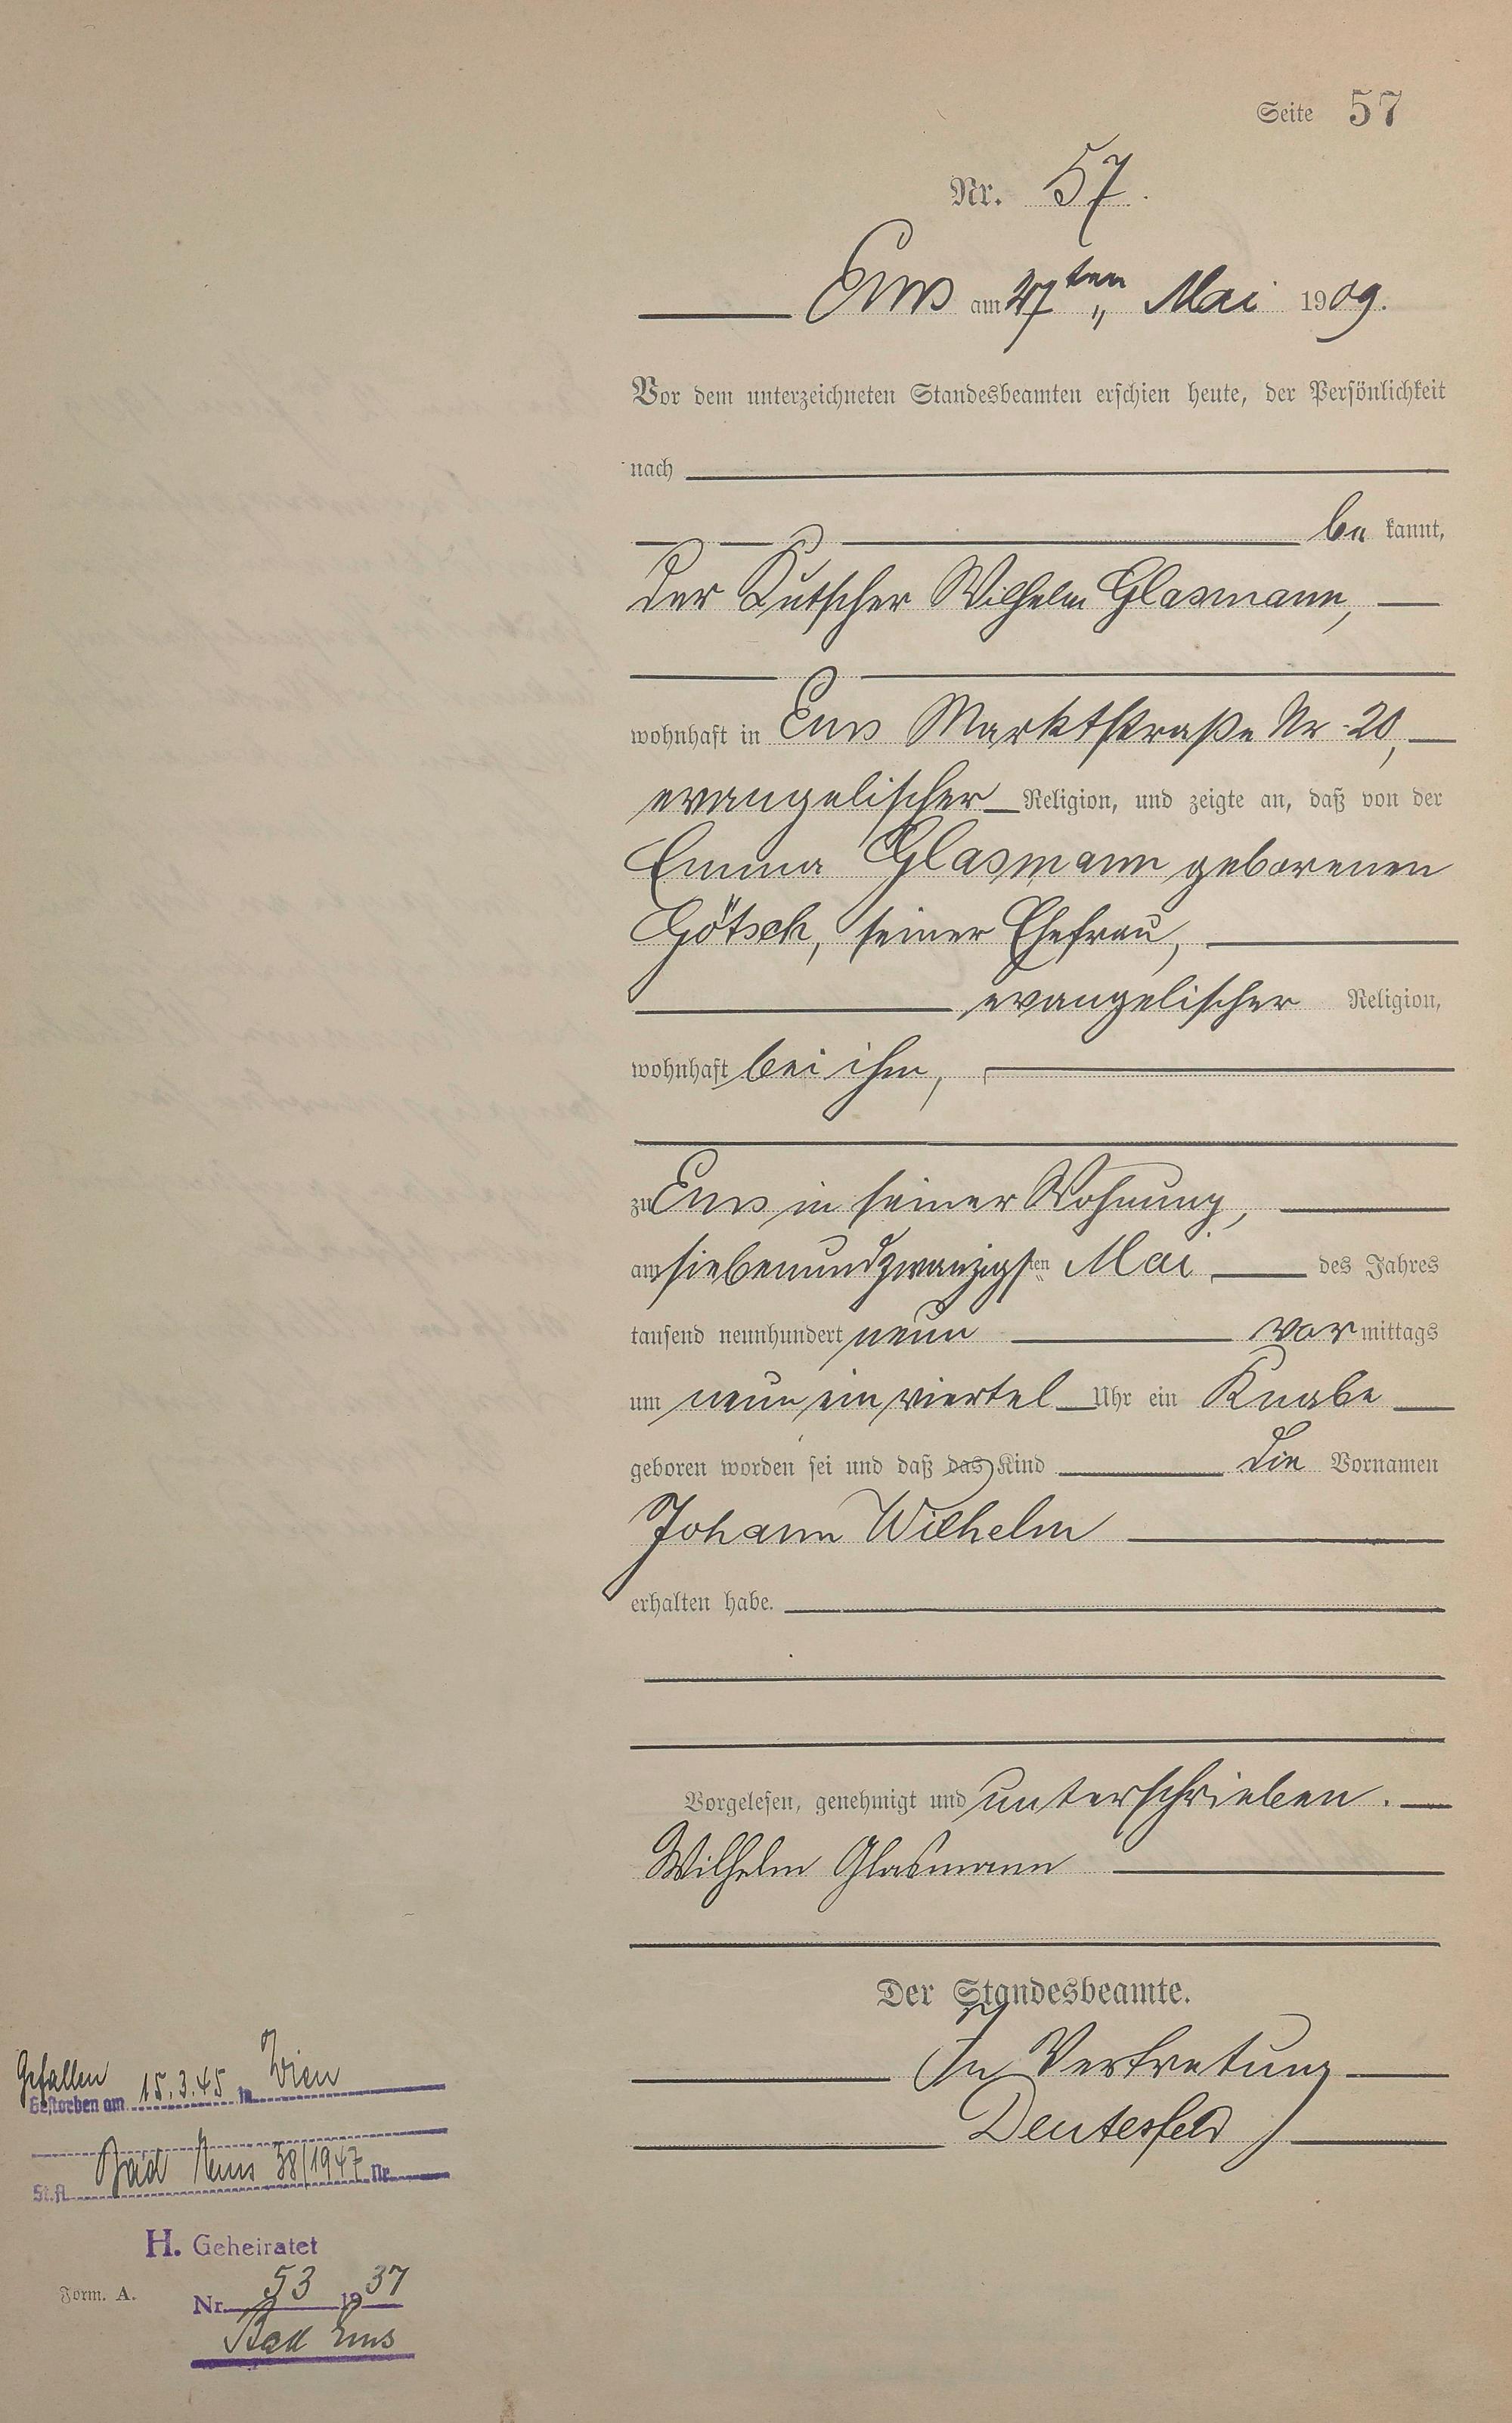 Seite 57
Nr. 57.
Ems am 27ten „ Mai 1909.
Vor dem unterzeichneten Standesbeamten erschien heute, der Persönlichkeit
nach
be kannt,
der Kutscher Wilhelm Glasmann,
wohnhaft in Ems Marktstraße Nr. 20,
evangelischer Religion, und zeigte an, daß von der
Emma Glasmann geborenen
Götsch, seiner Ehefrau,
evangelischer Religion,
wohnhaft bei ihm,
zu Ems in seiner Wohnung,
am siebenundzwanzigsten Mai des Jahres
tausend neunhundert neun vor mittags
um neun ein viertel Uhr ein Knabe
geboren worden sei und daß das Kind die Vornamen
Johann Wilhelm
erhalten habe.
Vorgelesen, genehmigt und unterschrieben.
Wilhelm Glasmann
Der Standesbeamte.
In Vertretung
Deutesfeld
Gefallen
Gestorben am 15.3.45 in Wien
St.A. Bad Ems 38/1947 Nr.
H. Geheiratet
Form. A.
Nr. 53 1937
Bad Ems